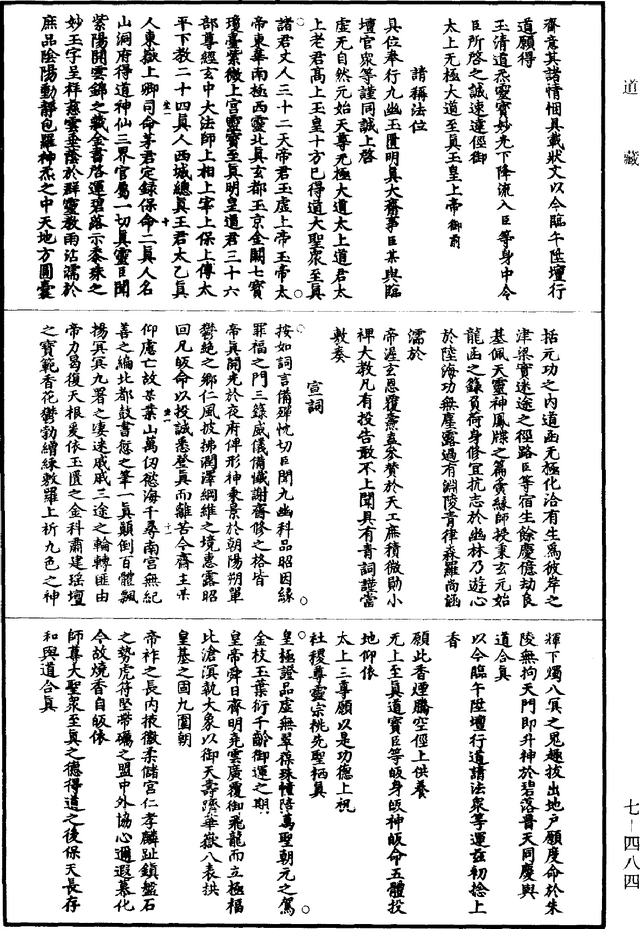 道藏
齋意其諸情悃具載狀文以今臨午陞壇行
道願得
玉清道炁靈寶妙光下降流入臣等身中令
臣所啓之誠速達徑御
太上無極大道至真玉皇上帝御前
請稱法位
具位奉行九幽玉匱明真大齋事臣某與臨
壇官衆等謹同誠上啓
虛无自然元始天尊无極大道太上道君太
上老君高上玉皇十方已得道大聖衆至真
諸君丈人三十二天帝君玉虛上帝玉帝太
帝東華南極西靈北真玄都玉京金闕七寳
瓊臺紫微上宮靈寳至真明皇道君三十六
部尊經玄中大法師上相上宰上保上傅太
平下教二十四真人西城總真王君太乙真
人東嶽上卿司命茅君定録保命二真人名
山洞府得道神仙三界官屬一切真靈臣聞
紫陽開雲錦之藏金書啓運碧落示黍珠之
妙玉宇呈祥慈雲垂蔭於群靈教雨沾濡於
庶品陰陽動靜包羅神炁之中天地方圓囊
括元功之內道函无極化洽有生爲彼岸之
津梁實迷途之徑路臣等宿生餘慶億劫良
基佩天靈神鳳牒之篇夤緣師授秉玄元始
龍函之籙負荷身修宜抗志於幽林乃遊心
於陸海功無塵露過有淵陵青律森羅尚涵
濡於
帝渥玄恩覆燾盍參贊於天工庶積微勛小
裨大教凡有投告敢不上聞具有青詞謹當
敷奏
宣詞
按如詞言備殫忱切臣聞九幽科品昭因緣
罪福之門三籙威儀備懺謝齋修之格皆
帝真開光於夜府俾形神乘景於朝陽朔單
鬱絕之鄉仁風披拂瀾澤綱維之境惠露昭
回凡皈命以投誠悉登真而離苦今齋主某
仰慮亡故某業山萬仞慾海千尋南宮無紀
善之編北都鼓書愆之筆一真顛倒百體飄
揚冥冥九署之淒凄戚戚三途之輪轉匪由
帝力曷復天根爰依玉匱之金科肅建瑶壇
之寶範香花鬱勃繒綵敷羅上祈九色之神
輝下燭八冥之鬼趣拔出地户願度命於朱
陵無拘天門即升神於碧落普天同慶與
道合真
以今臨午陞壇行道請法衆等運兹初捻上
香
願此香煙騰空徑上供養
无上至真道寶臣等皈身皈神皈命五體投
地仰依
太上三尊願以是功德上祝
社稷尊靈宗祧先聖栖真
皇極證品虛無翠葆珠幢陪萬聖朝元之駕
金枝玉葉衍千齡御運之期
皇帝舜日齊明堯雲廣覆御飛龍而立極福
比滄溟執大象以御天壽躋華嶽八表拱
皇基之固九圍朝
帝祚之長内掖徽柔儲宮仁孝麟趾鎮盤石
之勢虎符堅帶礪之盟中外協心邇遐慕化
今故燒香自皈依
師尊大聖衆至真之德得道之後保天長存
和與道合真
七－四八四